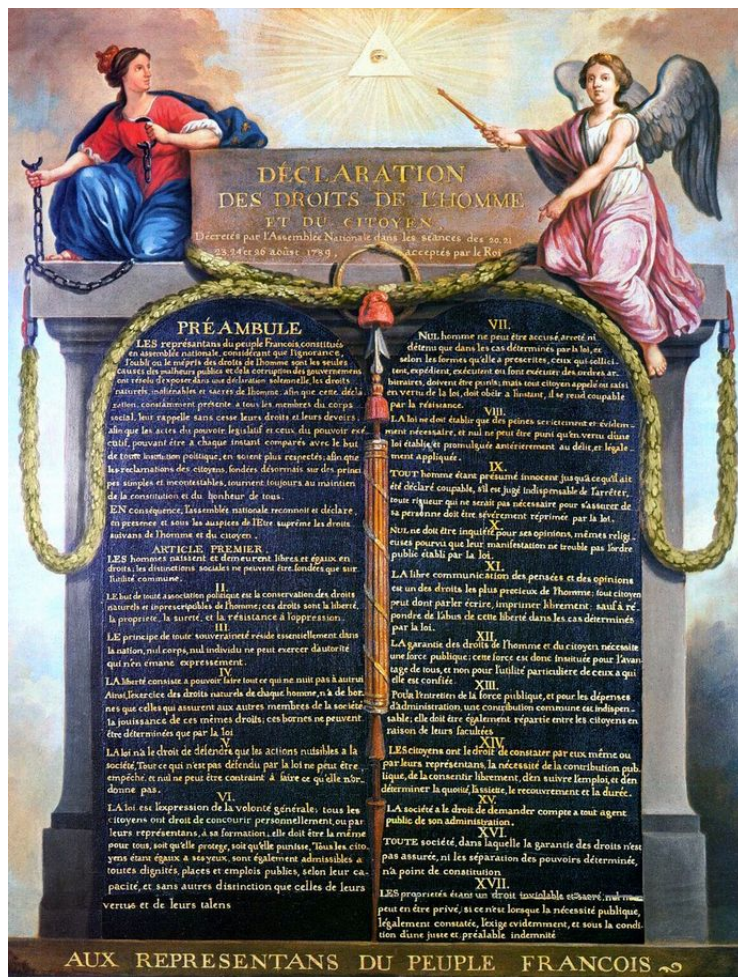 DÉCLARATION
DES DROITS DE L'HOMME
ET DU CITOYEN
Décretés par l'Assemblée Nationale dans les séances des 20, 21
23, 24 et 26 aoûst 1789, acceptés par le Roi
PRÉAMBULE
LES représantans du peuple Francois, constitués
en assemblée nationale, considérant que l'ignorance,
l'oubli ou le mépris des droits de l'homme sont les seules
causes des malheurs publics et de la corruption des gouvernemens
ont résolu d'exposer dans une déclaration solemnelle, les droits
naturels, inaliénables et sacrés de l'homme; afin que cette décla
ration, constamment présente a tous les membres du corps
social, leur rappelle sans cesse leurs droits et leurs devoirs,
afin que les actes du pouvoir legislatif et ceux du pouvoir exé-
cutif, pouvant être a chaque instant comparés avec le but
de toute institution politique, en soient plus respectés; afin que
les reclamations des citoyens, fondées désormais sur des princi
pes simples et incontestables, tournent toujours au maintien
de la constitution et du bonheur de tous.
EN conséquence, l'assemblée nationale reconnoit et déclare,
en presence et sous les auspices de l'Etre suprême les droits
suivans de l'homme et du citoyen.
ARTICLE PREMIER.
LES hommes naissent et demeurent libres et égaux en
droits; les distinctions sociales ne peuvent être fondées que sur
l'utilité commune.
II.
LE but de toute association politique est la conservation des droits
naturels et imprescriptibles de l'homme; ces droits sont la liberté,
la proprieté, la sureté, et la résistance à l'oppression.
III.
LE principe de toute souveraineté réside essentiellement dans
la nation, nul corps, nul individu ne peut exercer d'autorité
qui n'en émane expressément.
IV.
LA liberté consiste a pouvoir faire tout ce qui ne nuit pas à autrui
Ainsi, l'exercice des droits naturels de chaque homme, n'a de bor-
nes que celles qui assurent aux autres membres de la société
la jouissance de ces mêmes droits; ces bornes ne peuvent
être déterminées que par la loi
V.
LA loi n'a le droit de défendre que les actions nuisibles a la
société, Tout ce qui n'est pas défendu par la loi ne peut être
empêché, et nul ne peut être contraint à faire ce qu'elle n'or-
donne pas.
VI.
LA loi est l'expression de la volonté générale; tous les
citoyens ont droit de concourir personnellement, ou par
leurs représentans, à sa formation; elle doit être la même
pour tous, soit qu'elle protege, soit qu'elle punisse, Tous les cito
yens étant égaux a ses yeux, sont également admissibles a
toutes dignités, places et emplois publics, selon leur ca-
pacité, et sans autres distinction que celles de leurs
vertus et de leurs talens
VII.
NUL homme ne peut être accusé, arreté ni
détenu que dans les cas déterminés par la loi, et
selon les formes qu'elle a prescrites, ceux qui sollici-
tent, expédient, exécutent ou font exécuter des ordres ar-
bitraires, doivent être punis; mais tout citoyen appelé ou saisi
en vertu de la loi, doit obéir a l'instant, il se rend coupable
par la résistance.
VIII.
LA loi ne doit établir que des peines strictement et évidem-
ment nécessaire, et nul ne peut être puni qu'en vertu d'une
loi établie, et promulguée antérierement au délit, et légale-
ment appliquée.
IX.
TOUT homme étant présumé innocent jusqu'a ce qu'il ait
été déclaré coupable, s'il est jugé indispensable de l'arrêter,
toute rigueur qui ne serait pas nécessaire pour s'assurer de
sa personne doit être sévèrement réprimée par la loi.
X.
NUL ne doit être inquiété pour ses opinions, mêmes religi-
euses pourvû que leur manifestation ne trouble pas l'ordre
public établi par la loi.
XI.
LA libre communication des pensées et des opinions
est un des droits les plus precieux de l'homme; tout citoyen
peut dont parler écrire, imprimer librement; sauf à ré-
pondre de l'abus de cette liberté dans les cas déterminés
par la loi.
XII.
LA garantie des droits de l'homme et du citoyen nécessite
une force publique; cette force est donc instituée pour l'avan
tage de tous, et non pour l'utilité particuliere de ceux a qui
elle est confiée.
XIII.
Pour l'entretien de la force publique, et pour les dépenses
d'administration, une contribution commune est indispen-
sable; elle doit être également répartie entre les citoyens en
raison de leurs facultées
XIV.
LES citoyens ont le droit de constater par eux même ou
par leurs représentans, la nécessité de la contribution pub-
lique, de la consentir librement, d'en suivre l'emploi, et d'en
déterminer la quotité, l'assiette, le recouvrement et la durée.
XV.
LA société a le droit de demander compte a tout agent
public de son administration.
XVI.
TOUTE société, dans laquelle la garantie des droits n'est
pas assurée, ni les séparation des pouvoirs déterminée,
n'a point de constitution
XVII.
LES proprietés étant un droit inviolable et sacré, nul ne
peut en être privé, si ce n'est lorsque la nécessité publique,
légalement constatée, l'exige evidemment, et sous la condi-
tion d'une juste et préalable indemnité
AUX REPRESENTANS DU PEUPLE FRANCOIS